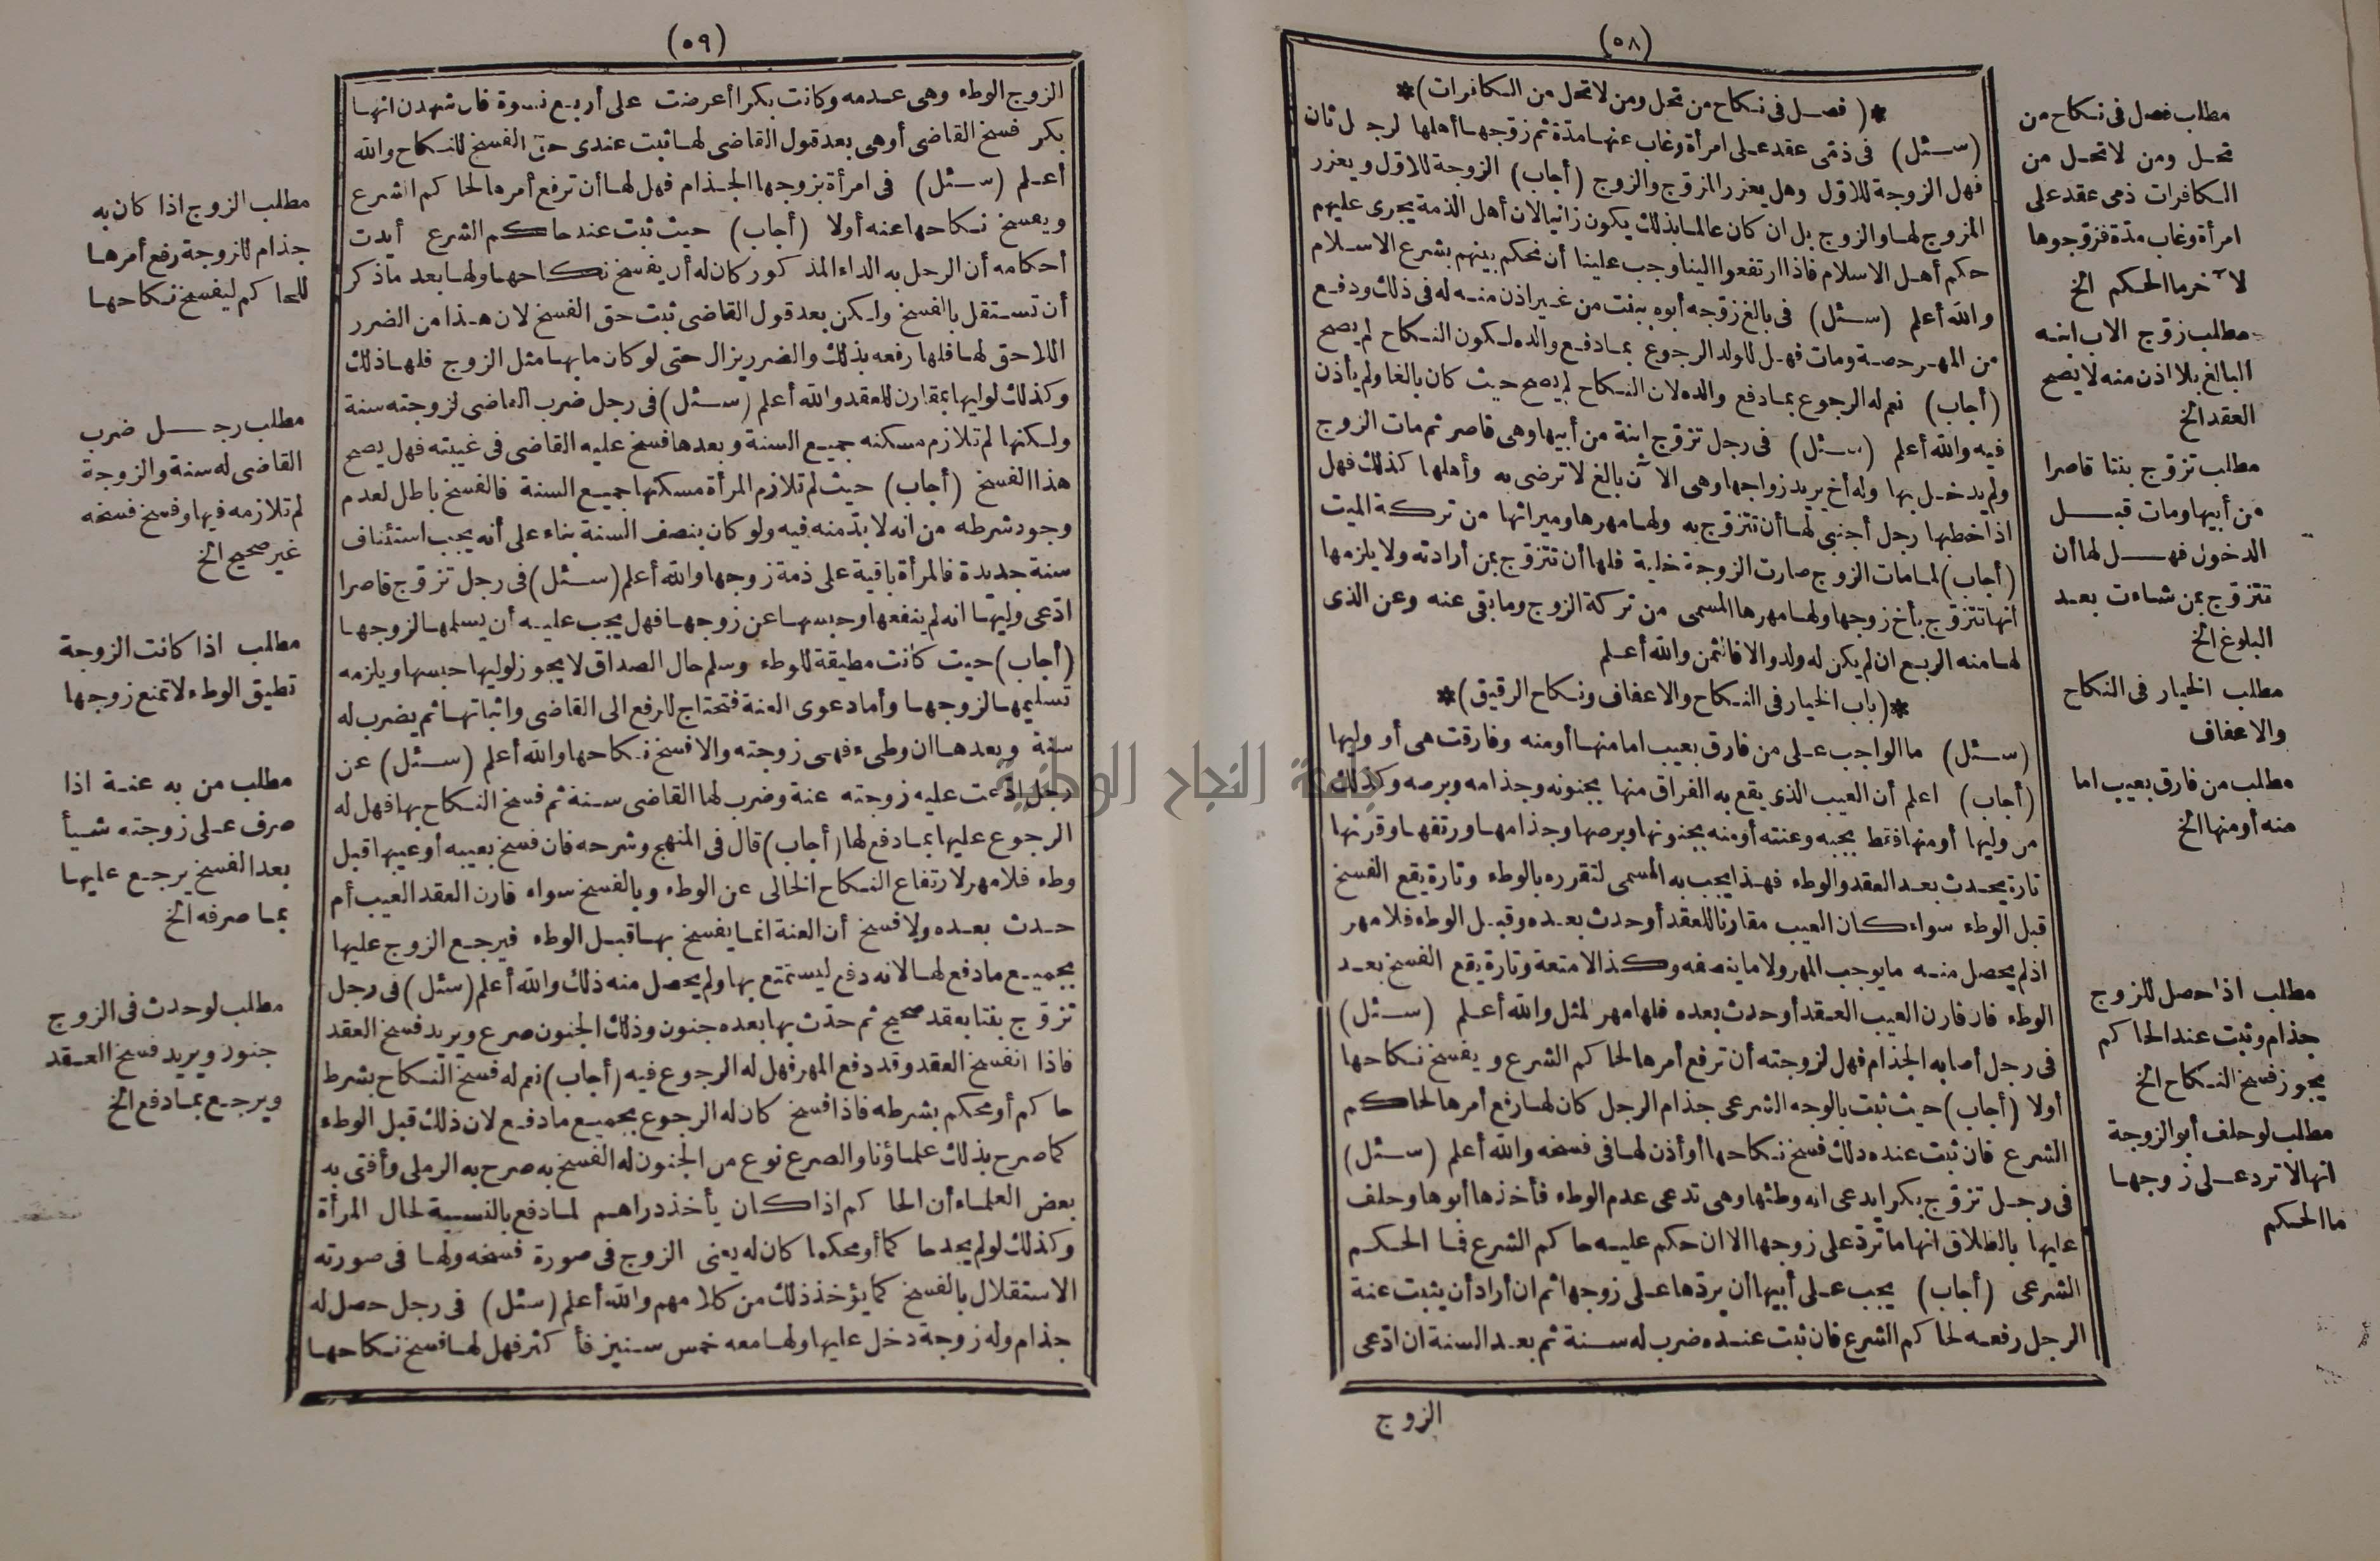 (٥٨)
*( فصل فى نكاح من تحل ومن لا تحل من الكافرات)*
(سئل) فى ذمى عقد على امرأة وغاب عنها مدة ثم زوجها أهلها لرجل ثان
فهل الزوجة للاول وهل يعزر المزوج والزوج (أجاب) الزوجة للاول ويعزر
المزوج لها والزوج بل ان كان عالما بذلك يكون زانيا لان أهل الذمة يجرى عليهم
حكم أهل الاسلام فاذا ارتفعوا الينا وجب علينا أن نحكم بينهم بشرع الاسلام
والله أعلم (سئل) فى بالغ زوجه أبوه ببنت من غير اذن منه له فى ذلك ودفع
من المهر حصة ومات فهل للولد الرجوع بما دفع والده لكون النكاح لم يصح
(أجاب) نعم له الرجوع بما دفع والده لان النكاح لم يصح حيث كان بالغا ولم يأذن
فيه والله أعلم (سئل) فى رجل تزوج ابنة من أبيها وهى قاصر ثم مات الزوج
ولم يدخل بها وله أخ يريد زواجها وهى الآن بالغ لا ترضى به وأهلها كذلك فهل
اذا خطبها رجل أجنبى لها أن تتزوج به ولها مهرها وميراثها من تركة الميت
(أجاب) لما مات الزوج صارت الزوجة خلية فلها أن تتزوج بمن أرادته ولا يلزمها
أنها تتزوج بأخ زوجها ولها مهرها المسمى من تركة الزوج وما بقى عنه وعن الذى
لها منه الربع ان لم يكن له ولد والا فالثمن والله أعلم
*(باب الخيار فى النكاح والاعفاف ونكاح الرقيق)*
(سئل) ما الواجب على من فارق بعيب اما منها أو منه وفارقت هى أو وليها
(أجاب) اعلم أن العيب الذى يقع به الفراق منها بجنونه وجذامه وبرصه وكذلك
من وليها أو منها فقط بجبه وعنته أو منه بجنونها وبرصها وجذامها ورتقها وقرنها
تارة يحدث بعد العقد والوطء فهذا يجب به المسمى لتقرره بالوطء وتارة يقع الفسخ
قبل الوطء سواء كان العيب مقارنا للعقد أو حدث بعده وقبل الوطء فلا مهر
اذ لم يحصل منه ما يوجب المهر ولا ما ينصفه وكذا لا متعة وتارة يقع الفسخ بعد
الوطء فان قارن العيب العقد أو حدث بعده فلها مهر المثل والله أعلم (سئل)
فى رجل أصابه الجذام فهل لزوجته أن ترفع أمرها لحاكم الشرع ويفسخ نكاحها
أولا (أجاب) حيث ثبت بالوجه الشرعى جذام الرجل كان لها رفع أمرها لحاكم
الشرع فان ثبت عنده ذلك فسخ نكاحها أو أذن لها فى فسخه والله أعلم (سئل)
فى رجل تزوج بكرا يدعى انه وطئها وهى تدعى عدم الوطء فأخذها أبوها وحلف
عليها بالطلاق انها ما ترد على زوجها الا ان حكم عليه حاكم الشرع فما الحكم
الشرعى (أجاب) يجب على أبيها أن يردها على زوجها ثم ان أراد أن يثبت عنة
الرجل رفعه لحاكم الشرع فان ثبت عنده ضرب له سنة ثم بعد السنة ان ادعى
الزوج
مطلب فصل فى نكاح من
تحل ومن لا تحل من
الكافرات ذمى عقد على
امرأة وغاب مدة فزوجوها
لآخر ما الحكم الخ
مطلب زوج الاب ابنه
البالغ بلا اذن منه لا يصح
العقد الخ
مطلب تزوج بنتا قاصرا
من أبيها ومات قبل
الدخول فهل لها أن
تتزوج بمن شاءت بعد
البلوغ الخ
مطلب الخيار فى النكاح
والاعفاف
مطلب من فارق بعيب اما
منه أو منها الخ
مطلب اذا حصل للزوج
جذام وثبت عند الحاكم
يجوز فسخ النكاح الخ
مطلب لو حلف أبو الزوجة
انها لا ترد على زوجها
ما الحكم
(٥٩)
الزوج الوطء وهى عدمه وكانت بكرا أعرضت على أربع نسوة فان شهدن انها
بكر فسخ القاضى أو هى بعد قول القاضى لها ثبت عندى حق الفسخ للنكاح والله
أعلم (سئل) فى امرأة بزوجها الجذام فهل لها أن ترفع أمره الحاكم الشرع
ويفسخ نكاحها عنه أولا (أجاب) حيث ثبت عند حاكم الشرع أيدت
أحكامه أن الرجل به الداء المذكور كان له أن يفسخ نكاحها ولها بعد ما ذكر
أن تستقل بالفسخ ولكن بعد قول القاضى ثبت حق الفسخ لان هذا من الضرر
اللاحق لها فلها رفعه بذلك والضرر يزال حتى لو كان ما بها مثل الزوج فلها ذلك
وكذلك لوليها بمقارن للعقد والله أعلم (سئل) فى رجل ضرب القاضى لزوجته سنة
ولكنها لم تلازم مسكنه جميع السنة وبعدها فسخ عليه القاضى فى غيبته فهل يصح
هذا الفسخ (أجاب) حيث لم تلازم المرأة مسكنها جميع السنة فالفسخ باطل لعدم
وجود شرطه من انه لا بد منه فيه ولو كان بنصف السنة بناء على أنه يجب استئناف
سنة جديدة فالمرأة باقية على ذمة زوجها والله أعلم (سئل) فى رجل تزوج قاصرا
ادعى وليها انه لم ينفعها وحبسها عن زوجها فهل يجب عليه أن يسلمها لزوجها
(أجاب) حيث كانت مطيقة للوطء وسلم حال الصداق لا يجوز لوليها حبسها ويلزمه
تسليمها لزوجها وأما دعوى العنة فتحتاج للرفع الى القاضى واثباتها ثم يضرب له
سنة وبعدها ان وطىء فهى زوجته والا فسخ نكاحها والله أعلم (سئل) عن
رجل ادعت عليه زوجته عنة وضرب لها القاضى سنة ثم فسخ النكاح بها فهل له
الرجوع عليها بما دفع لها (أجاب) قال فى المنهج وشرحه فان فسخ بعيبه أو عيبها قبل
وطء فلا مهر لارتفاع النكاح الخالى عن الوطء وبالفسخ سواء قارن العقد العيب أم
حدث بعده ولا فسخ أن العنة انما يفسخ بها قبل الوطء فيرجع الزوج عليها
بجميع ما دفع لها لانه دفع ليستمتع بها ولم يحصل منه ذلك والله أعلم (سئل) فى رجل
تزوج بنتا بعقد صحيح ثم حدث بها بعده جنون وذلك الجنون صرع ويريد فسخ العقد
فاذا انفسخ العقد وقد دفع المهر فهل له الرجوع فيه (أجاب) نعم له فسخ النكاح بشرط
حاكم أو محكم بشرطه فاذا فسخ كان له الرجوع بجميع ما دفع لان ذلك قبل الوطء
كما صرح بذلك علماؤنا والصرع نوع من الجنون له الفسخ به صرح به الرملى وأفتى به
بعض العلماء أن الحاكم اذا كان يأخذ دراهم لما دفع بالنسبة لحال المرأة
وكذلك لو لم يجد حاكما أو محكما كان له يعنى الزوج فى صورة فسخه ولها فى صورته
الاستقلال بالفسخ كما يؤخذ ذلك من كلامهم والله أعلم (سئل) فى رجل حصل له
جذام وله زوجة دخل عليها ولها معه خمس سنين فأكثر فهل لها فسخ نكاحها
مطلب الزوج اذا كان به
جذام للزوجة رفع أمرها
للحاكم ليفسخ نكاحها
مطلب رجل ضرب
القاضى له سنة والزوجة
لم تلازمه فيها وفسخ فسخه
غير صحيح الخ
مطلب اذا كانت الزوجة
تطيق الوطء لا تمنع زوجها
مطلب من به عنة اذا
صرف على زوجته شيأ
بعد الفسخ يرجع عليها
بما صرفه الخ
مطلب لو حدث فى الزوج
جنون ويريد فسخ العقد
ويرجع بما دفع الخ
جامعة النجاح الوطنية